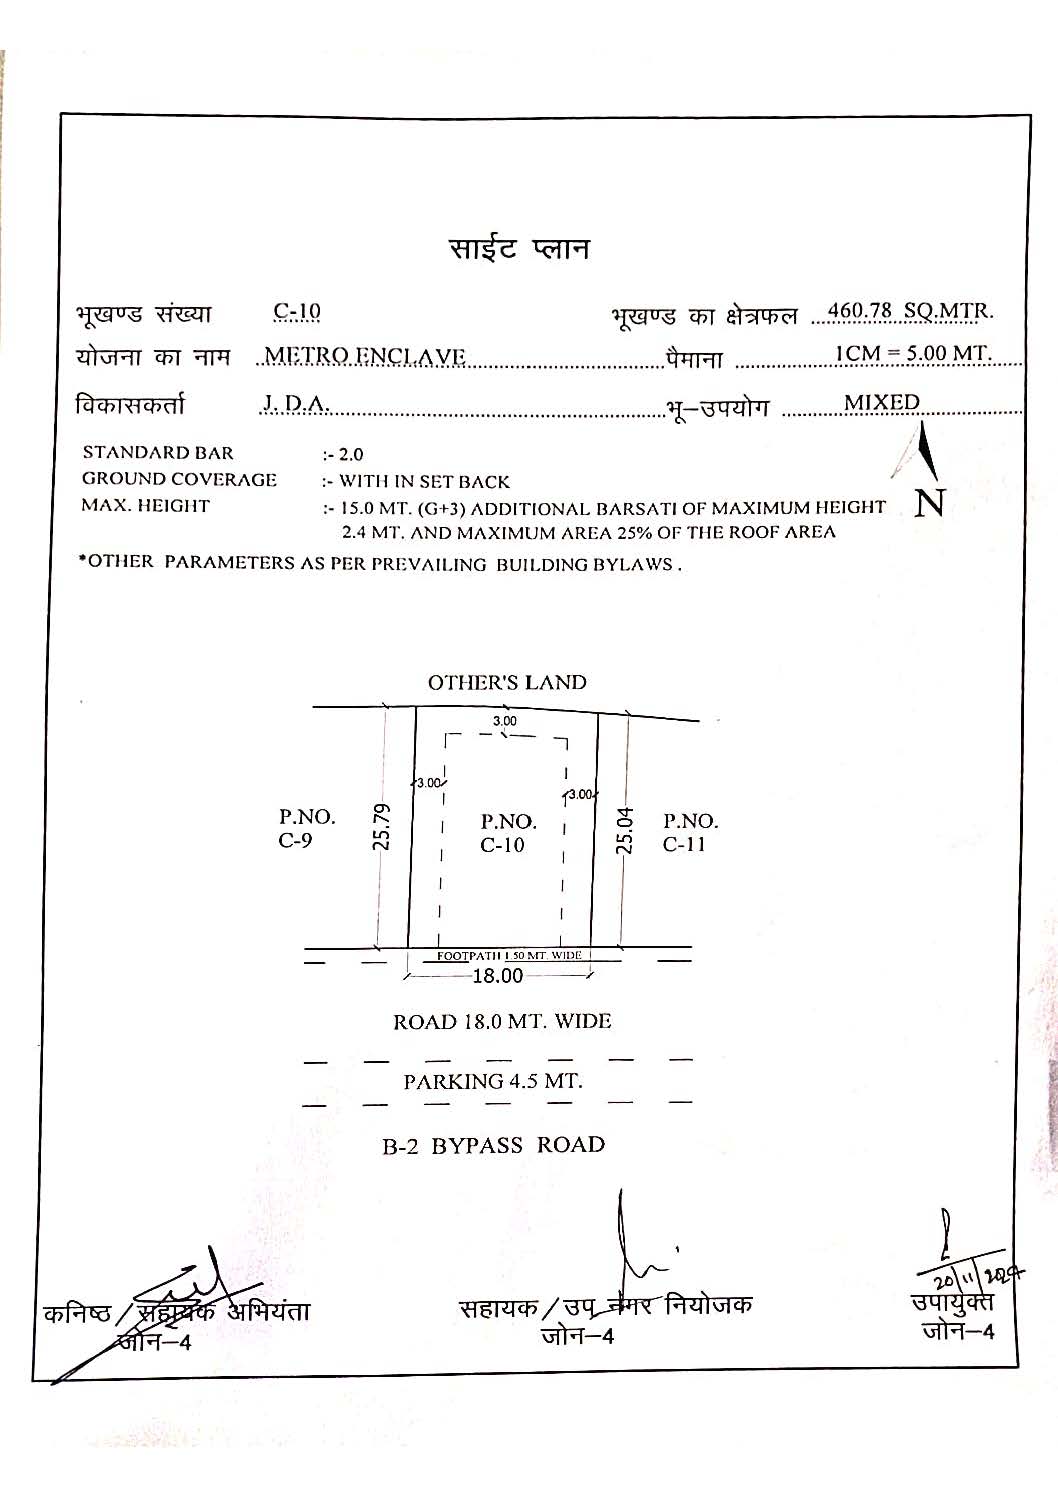 साईट प्लान
भूखण्ड संख्या C-10 भूखण्ड का क्षेत्रफल 460.78 SQ.MTR.
योजना का नाम METRO ENCLAVE पैमाना 1CM = 5.00 MT.
विकासकर्ता J. D.A. भू-उपयोग MIXED
STANDARD BAR :- 2.0
GROUND COVERAGE :- WITH IN SET BACK
MAX. HEIGHT :- 15.0 MT. (G+3) ADDITIONAL BARSATI OF MAXIMUM HEIGHT
2.4 MT. AND MAXIMUM AREA 25% OF THE ROOF AREA
N
*OTHER PARAMETERS AS PER PREVAILING BUILDING BYLAWS .
OTHER'S LAND
3.00
3.00
3.00
25.79
25.04
P.NO.
C-9
P.NO.
C-10
P.NO.
C-11
FOOTPATH 1.50 MT. WIDE
18.00
ROAD 18.0 MT. WIDE
PARKING 4.5 MT.
B-2 BYPASS ROAD
20/11/2024
कनिष्ठ / सहायक अभियंता
जोन-4
सहायक / उप नगर नियोजक
जोन-4
उपायुक्त
जोन-4